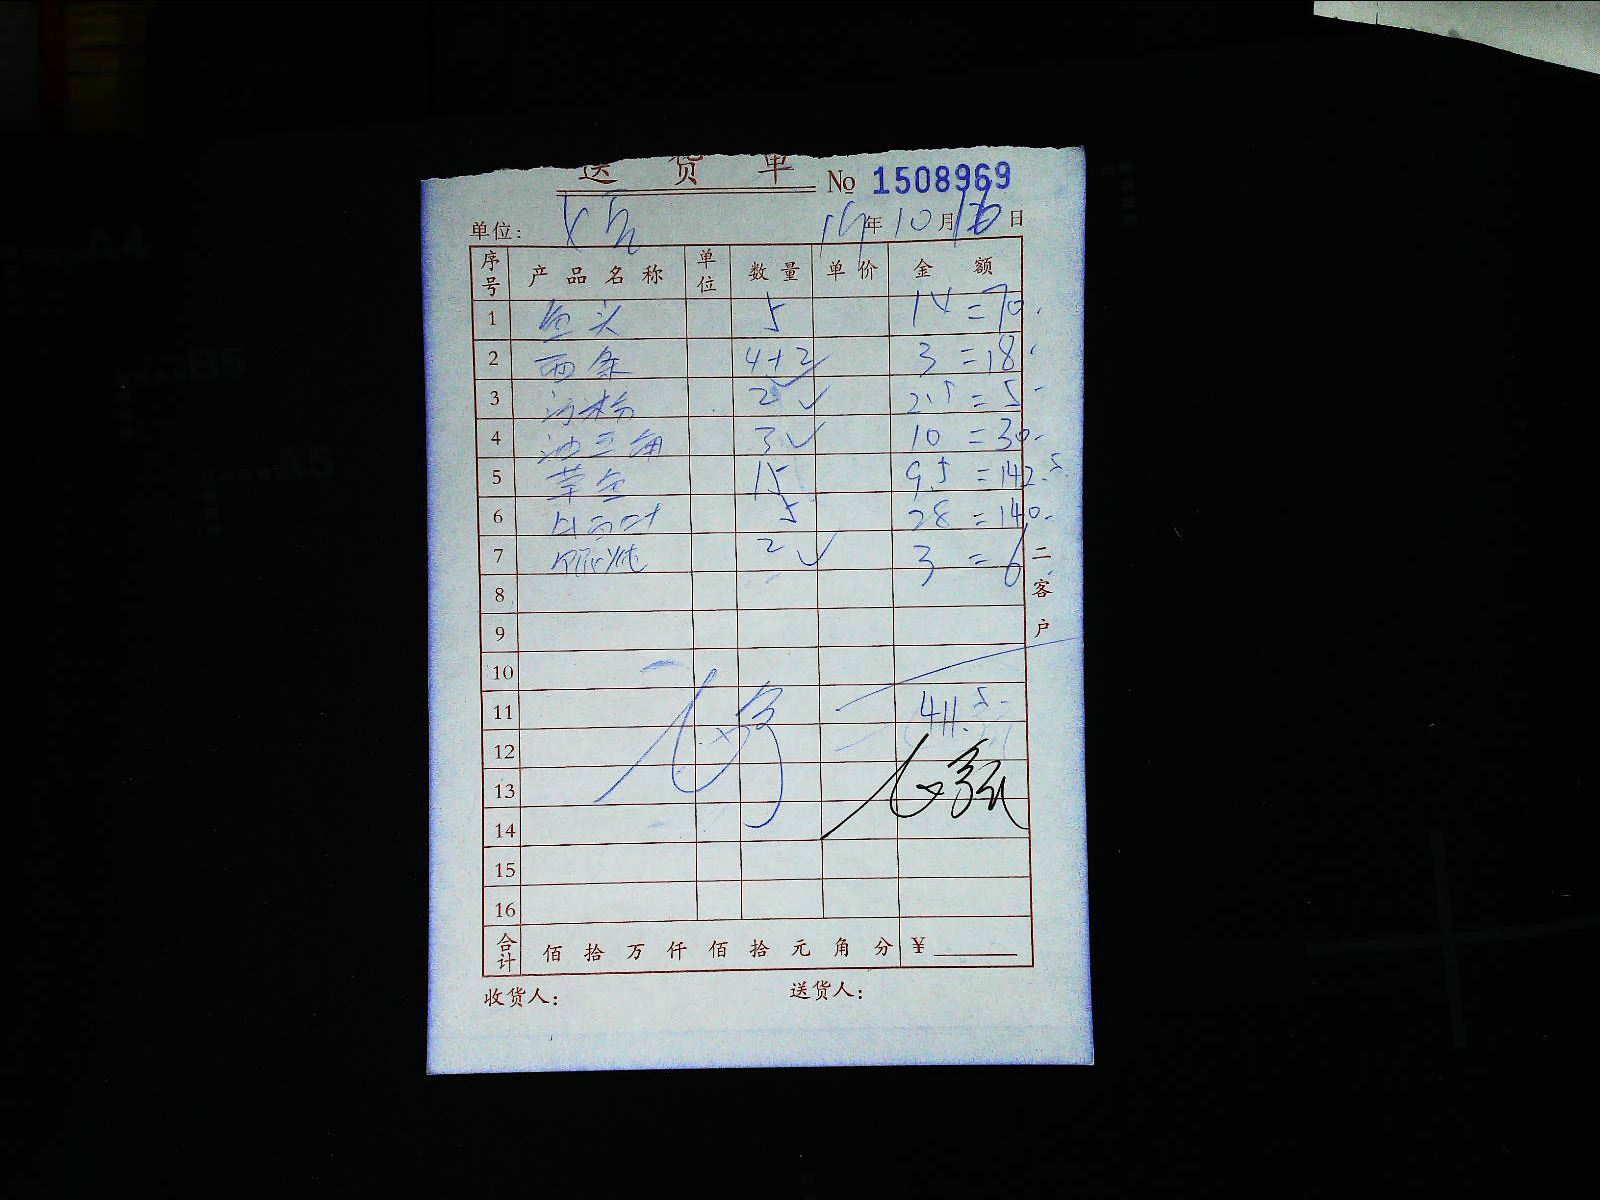 送 货 单
№ 1508969
单位: 年 10 月 16 日
序号 产品名称 单位 数量 单价 金额
1 鱼头 5 14 =70.
2 面条 4+2 3 =18
3 河粉 2 2.5 =5
4 油三角 3 10 =30
5 草鱼 15 9.5 =142.5
6 5 28 =140
7 2 3 =6
8
9
10
11 411.5
12
13
14
15
16
合计 佰 拾 万 仟 佰 拾 元 角 分 ¥
收货人: 送货人:
二客户
A4
B5
A5